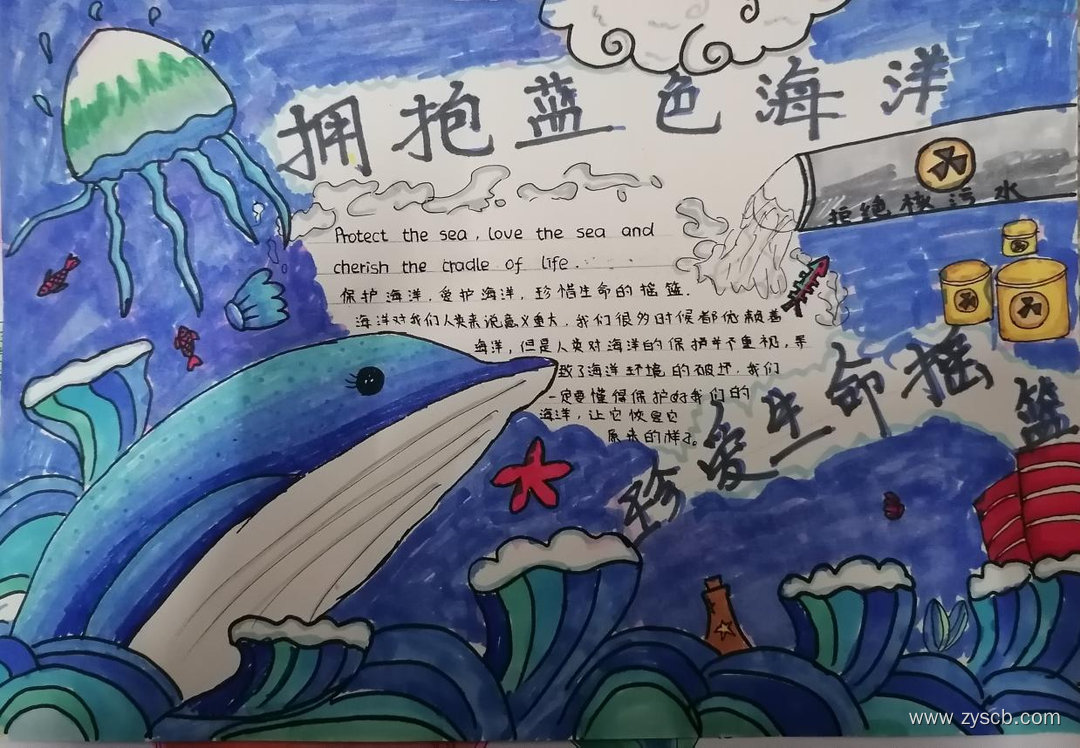 拥抱蓝色海洋
拒绝核污水
Protect the sea, love the sea and
cherish the cradle of life.
保护海洋,爱护海洋,珍惜生命的摇篮.
海洋对我们人类来说意义重大,我们很多时候都依赖着
海洋,但是人类对海洋的保护并不重视,导
致了海洋环境的破坏,我们
一定要懂得保护好我们的
海洋,让它恢复它
原来的样子。
珍爱生命摇篮
www.zyscb.com